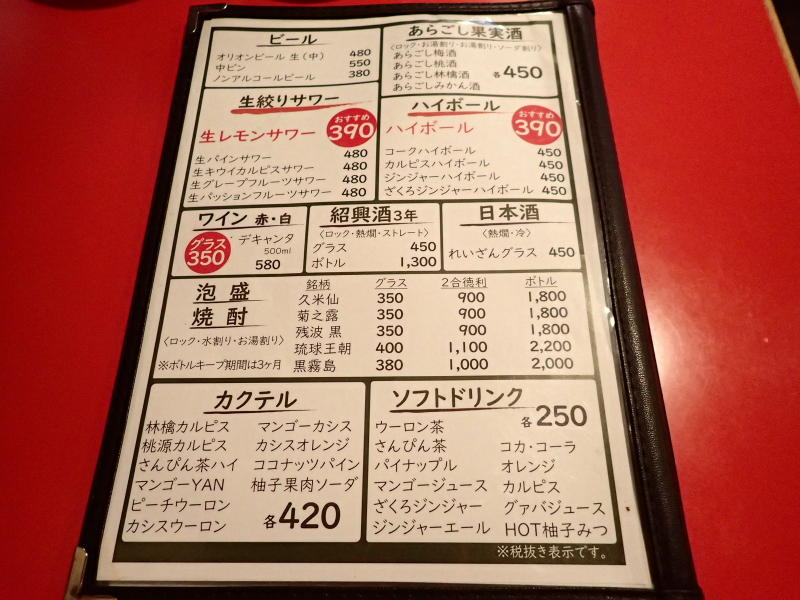 ビール
オリオンビール 生（中） 480
中ビン 550
ノンアルコールビール 380
あらごし果実酒
〈ロック・お湯割り・お湯割り・ソーダ割り〉
あらごし梅酒
あらごし桃酒
あらごし林檎酒
あらごしみかん酒
各450
生絞りサワー
生レモンサワー おすすめ 390
生パインサワー 480
生キウイカルピスサワー 480
生グレープフルーツサワー 480
生パッションフルーツサワー 480
ハイボール
ハイボール おすすめ 390
コークハイボール 450
カルピスハイボール 450
ジンジャーハイボール 450
ざくろジンジャーハイボール 450
ワイン 赤・白
グラス 350
デキャンタ
500ml
580
紹興酒3年
〈ロック・熱燗・ストレート〉
グラス 450
ボトル 1,300
日本酒
〈熱燗・冷〉
れいざんグラス 450
泡盛
焼酎
〈ロック・水割り・お湯割り〉
※ボトルキープ期間は3ヶ月
銘柄 グラス 2合徳利 ボトル
久米仙 350 900 1,800
菊之露 350 900 1,800
残波 黒 350 900 1,800
琉球王朝 400 1,100 2,200
黒霧島 380 1,000 2,000
カクテル
林檎カルピス マンゴーカシス
桃源カルピス カシスオレンジ
さんぴん茶ハイ ココナッツパイン
マンゴーYAN 柚子果肉ソーダ
ピーチウーロン
カシスウーロン
各420
ソフトドリンク
各250
ウーロン茶
さんぴん茶 コカ・コーラ
パイナップル オレンジ
マンゴージュース カルピス
ざくろジンジャー グァバジュース
ジンジャーエール HOT柚子みつ
※税抜き表示です。